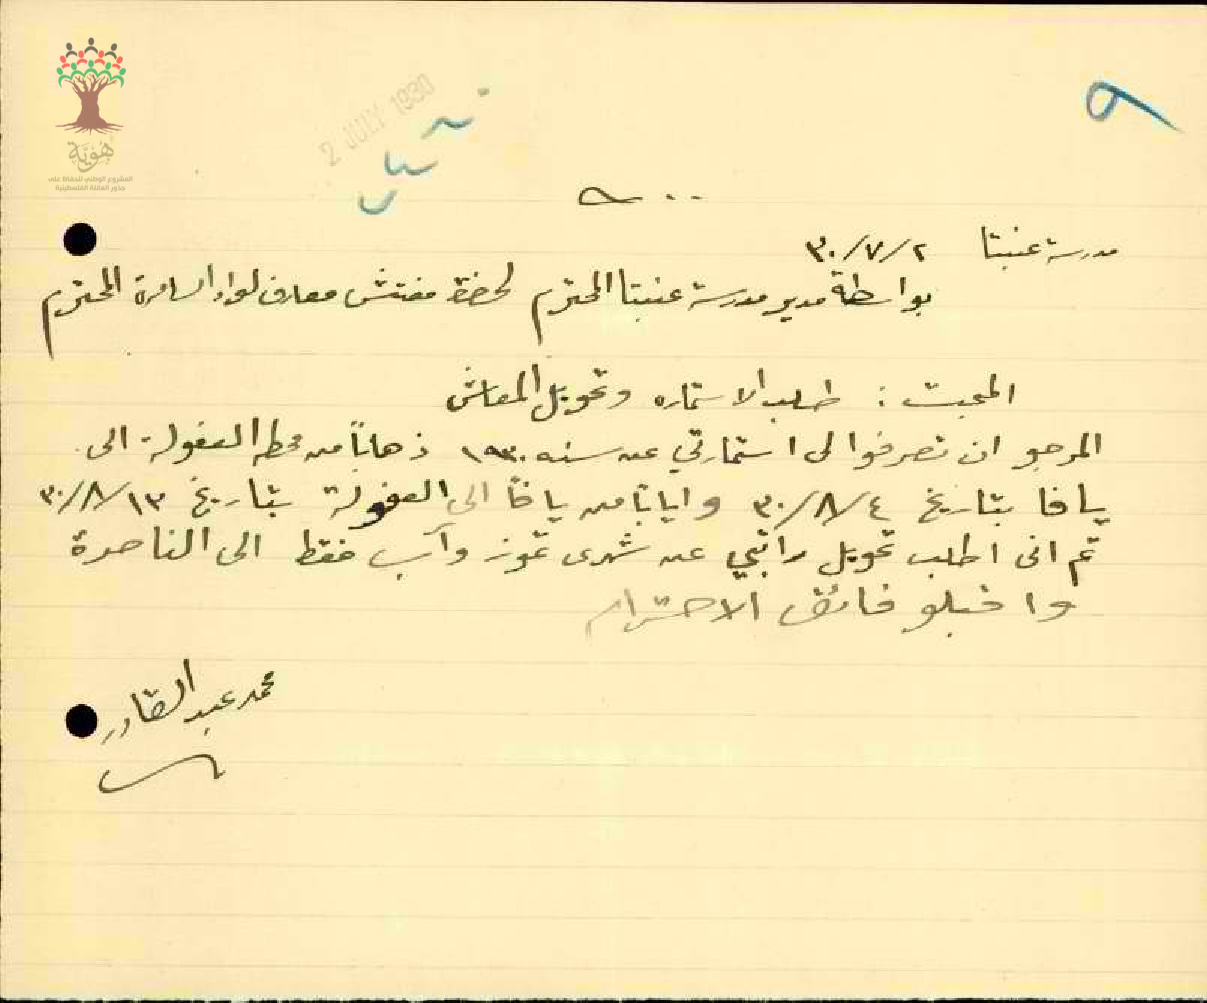 ٩
2 JULY 1930
هوية
المشروع الوطني للحفاظ على
جذور العائلة الفلسطينية
مدرسة عنبتا ٢/٧/٣٠
بواسطة مدير مدرسة عنبتا المحترم لحضرة مفتش معارف لواء السامرة المحترم
المبحث : طلب الاستماره وتحويل المعاش
المرجو ان تصرفوا لى استمارتي عن سنه ١٩٣٠ ذهاباً من محطه العفولة الى
يافا بتاريخ ٤/٨/٣٠ و اياباً من يافا الى العفولة بتاريخ ١٣/٨/٣٠
ثم انى اطلب تحويل راتبي عن شهرى تموز وآب فقط الى الناصرة
واقبلو فائق الاحترام
محمد عبد القادر